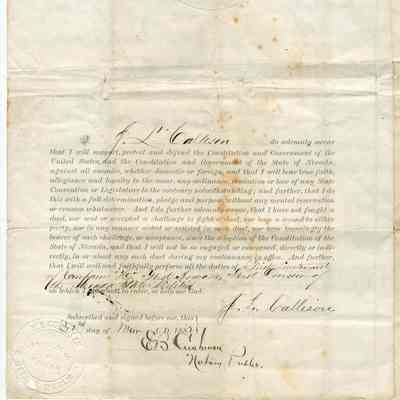 I J. L. Callison do solemnly swear
that I will support, protect and defend the Constitution and Government of the
United States, and the Constitution and Government of the State of Nevada,
against all enemies, whether domestic or foreign, and that I will bear true faith,
allegiance and loyalty to the same, any ordinance, resolution or law of any State
Convention or Legislature to the contrary notwithstanding; and further, that I do
this with a full determination, pledge and purpose, without any mental reservation
or evasion whatsoever. And I do further solemnly swear, that I have not fought a
duel, nor sent or accepted a challenge to fight a duel, nor been a second to either
party, nor in any manner aided or assisted in such duel, nor been knowingly the
bearer of such challenge, or acceptance, since the adoption of the Constitution of the
State of Nevada, and that I will not be so engaged or concerned, directly or indi-
rectly, in or about any such duel during my continuance in office. And further,
that I will well and faithfully perform all the duties of
on which I am about to enter, so help me God.
J. L. Callison
Subscribed and signed before me, this
day of
Notary Public